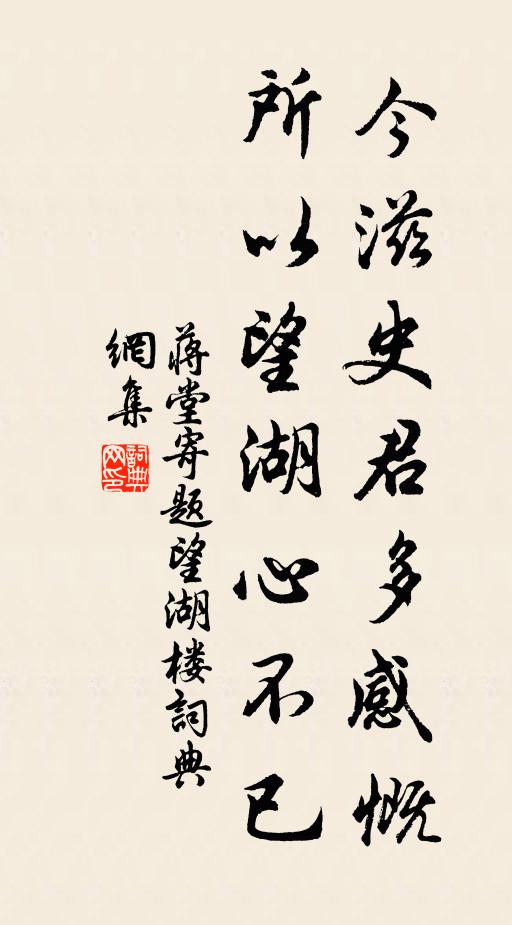 今滋史君多感慨
所以望湖心不已
蔣堂寄题望湖楼詞典
網集
詞典
网印